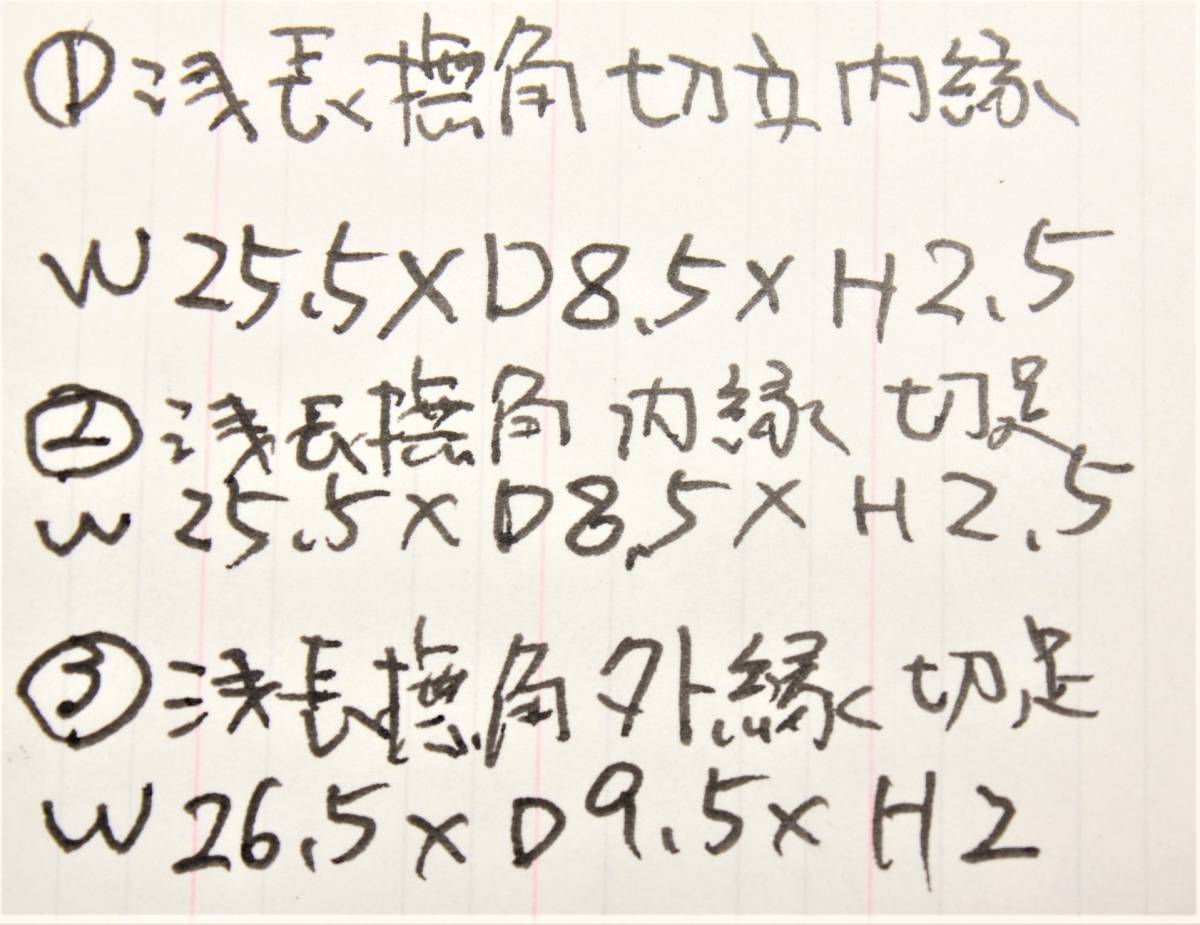 ①浅長撫角切立内縁
W25.5×D8.5×H2.5
②浅長撫角 内縁 切足
W25.5×D8.5×H2.5
③浅長撫角外縁切足
W26.5×D9.5×H2